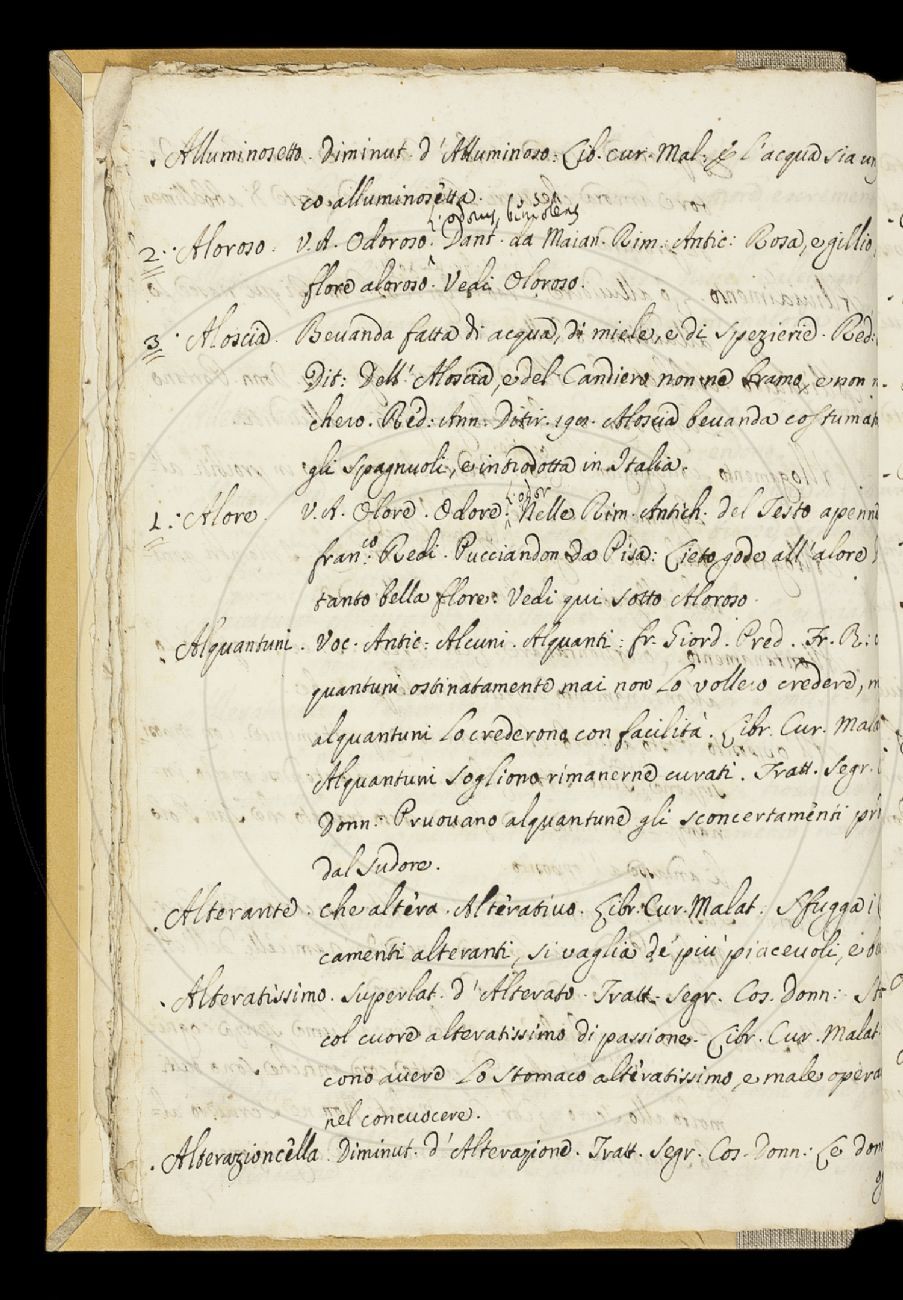 . Alluminosetto. Diminut. d'Alluminoso: Lib. cur. Mal. l'acqua sia un
co alluminosetta.
L. odorus, beneolens
2. Aloroso. V. A. Odoroso. Dant. da Maian. Rim. Antic: Rosa, e gillio,
flore aloroso. Vedi Oloroso.
3. Aloscia. Bevanda fatta di acqua, di miele, e di spezierie. Red:
Dit: Dell'Aloscia, e del Candiero non ne bramo, e non n
chero. Red: Ann. Ditir. Aloscia bevanda costuma
gli Spagnuoli, e introdotta in Italia.
L. odor
1. Alore. V. A. Olore. Odore. Nelle Rim. Antich. del Testo a penn
Fran.co Redi. Pucciandon da Pisa: Lieto gode all'alore
tanto bella flore. Vedi qui sotto Aloroso.
Alquantuni. Voc. Antic: Alcuni. Alquanti: fr. Giord. Pred. Fr. R:
quantuni ostinatamente mai non lo vollero credere, m
alquantuni lo crederono con facilità. Libr. Cur. Mala
Alquantuni sogliono rimanerne curati. Tratt. Segr.
Donn: Pruovano alquantune gli sconcertamenti pri
dal sudore.
. Alterante. Che altera. Alterativo. Libr. Cur. Malat. Sfugga i
camenti alteranti, si vaglia de' più piacevoli, e
. Alteratissimo. Superlat. d'Alterato. Tratt. Segr. Cos. Donn:
col cuore alteratissimo di passione. Libr. Cur. Malat
cono avere lo stomaco alteratissimo, e male opera
nel concuocere.
. Alterazioncella. Diminut. d'Alterazione. Tratt. Segr. Cos. Donn: Le don